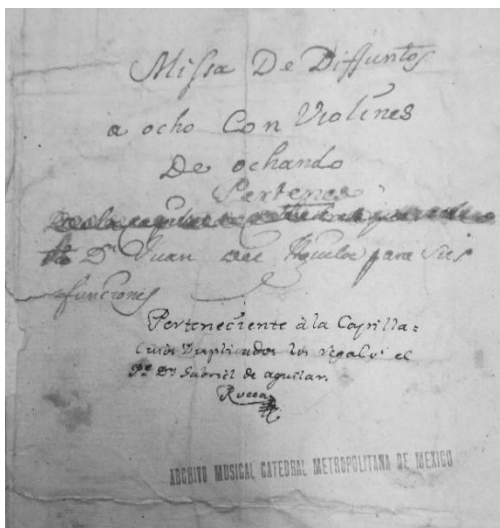 Missa De Diffuntos
a ocho Con Violines
De ochando
Pertenece
Dn Juan para sus
funciones
Perteneciente â la Capilla=
Cuios Duplicados los regalo el
Pe. Dn Gabriel de aguilar.
Rocca
ARCHIVO MUSICAL CATEDRAL METROPOLITANA DE MEXICO